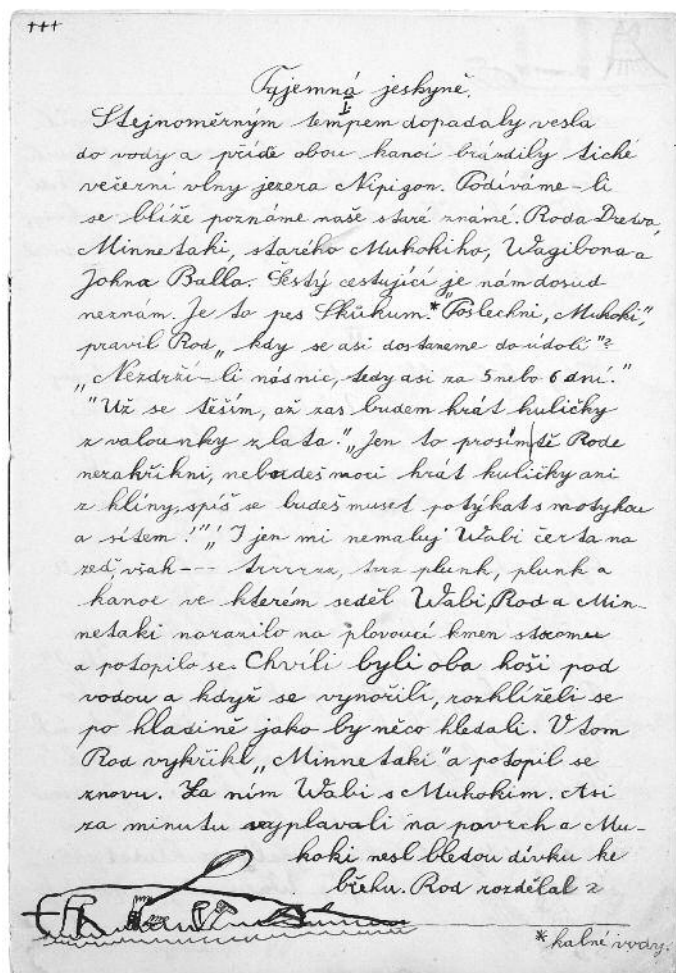 +++
Tajemná jeskyně.
I.
Stejnoměrným tempem dopadaly vesla
do vody a přídě obou kanoí brázdily tiché
večerní vlny jezera Nipigon. Podíváme-li
se blíže poznáme naše staré známé. Roda Drewa,
Minnetaki, starého Mukokiho, Wagibona a
Johna Balla. Šestý cestující je nám dosud
neznám. Je to pes Skúkum.* "Poslechni, Mukoki",
pravil Rod „kdy se asi dostaneme do údolí"?
„Nezdrží-li nás nic, tedy asi za 5 nebo 6 dní."
"Už se těším, až zas budem hrát kuličky
z valounky zlata." „Jen to prosím tě Rode
nezakřikni, nebudeš moci hrát kuličky ani
z hlíny, spíš se budeš muset potýkat s motykou
a sítem!" „I jen mi nemaluj Wabi čerta na
zeď, však --- trrrrrzz, trzz plunk, plunk a
kanoe ve kterém seděl Wabi, Rod a Min-
netaki narazilo na plovoucí kmen stromu
a potopilo se. Chvíli byli oba hoši pod
vodou a když se vynořili, rozhlíželi se
po hladině jako by něco hledali. V tom
Rod vykřikl „Minnetaki" a potopil se
znovu. Za ním Wabi s Mukokim. Asi
za minutu vyplavali na povrch a Mu-
koki nesl bledou dívku ke
břehu. Rod rozdělal z
* kalné vody.